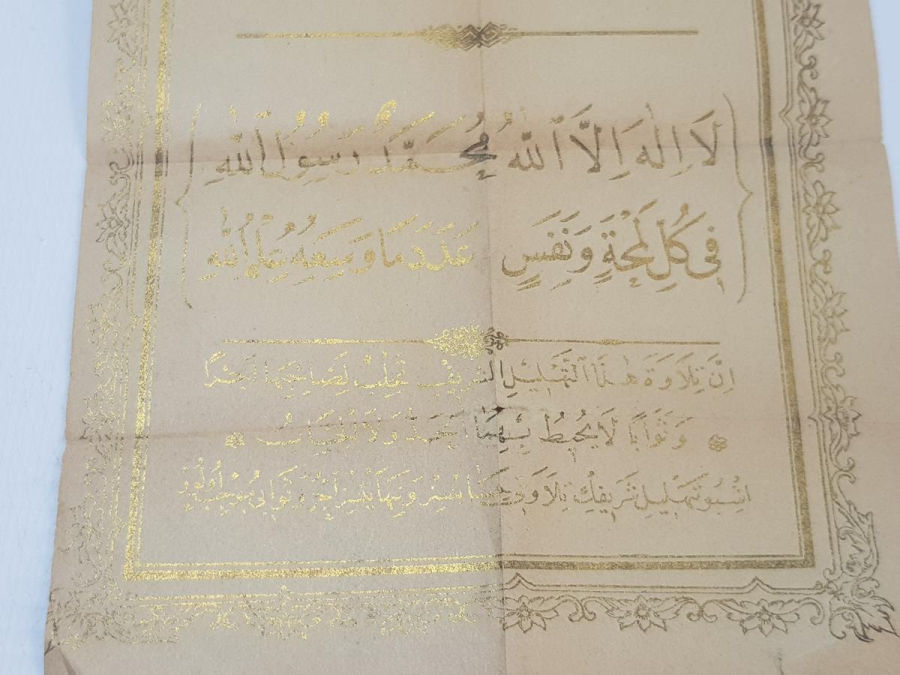 لَا اِلٰهَ اِلَّا اللّٰهُ مُحَمَّدٌ رَسُولُ اللّٰهِ
فِي كُلِّ لَمْحَةٍ وَنَفَسٍ عَدَدَ مَا وَسِعَهُ عِلْمُ اللّٰهِ
اِنَّ تِلَاوَةَ هٰذَا التَّهْلِيلِ الشَّرِيفِ تَجْلِبُ لِصَاحِبِهَا اَجْرًا
وَثَوَابًا لَا يُحِيطُ بِهِمَا
اشبو تهليل شريفك تلاوتى